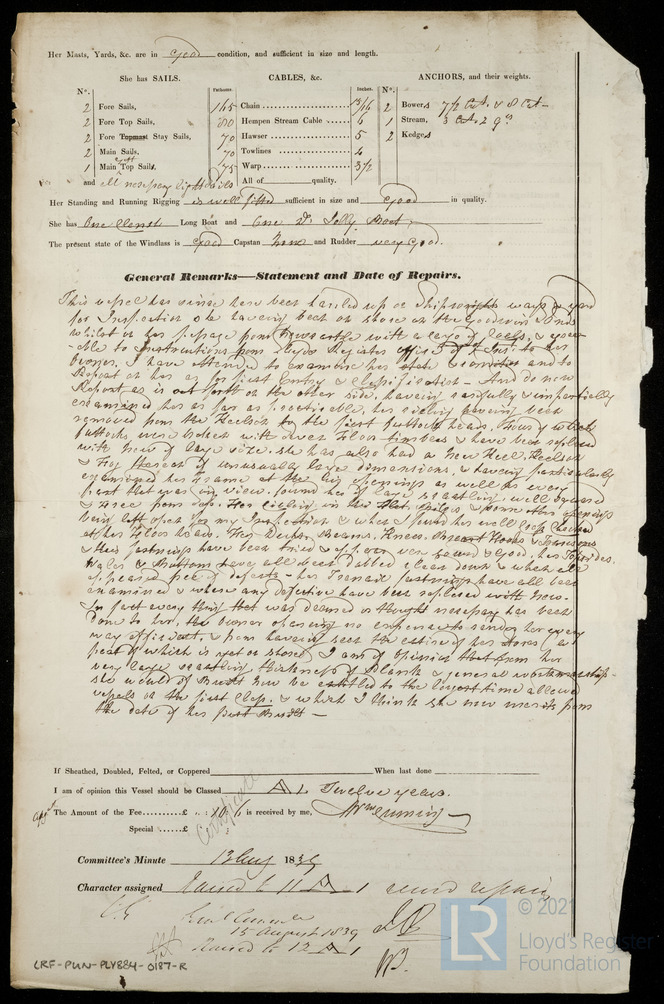 Her Masts, Yards, &c. are in good condition, and sufficient in size and length.
She has SAILS. CABLES, &c. ANCHORS, and their weights.
N°. Fathoms. Inches. N°.
2 Fore Sails, Chain 165 1 3/16 2 Bowers 7 1/2 Cwt. & 8 Cwt
2 Fore Top Sails, Hempen Stream Cable 80 6 1 Stream, 3 Cwt. 2 qrs
2 Fore Topmast Stay Sails, Hawser 70 5 2 Kedges
2 Main Sails, Towlines 70 4
1 Main Top Sails, Warp 75 3 1/2
and all necessary light Sails All of quality.
Her Standing and Running Rigging is well fitted sufficient in size and good in quality.
She has One Long Boat and One Do. Jolly Boat
The present state of the Windlass is good Capstan None and Rudder very good.
General Remarks—Statement and Date of Repairs.
This vessel has since here been hauled up on Shipwright ways
for Inspection she having been on shore on the Goodwin
whilst on her passage from Newcastle with a cargo of
to Instructions from Lloyds Register office 5 of
I have attended to examine her state & condition and to
Report on her as for first entry & Classification - And do now
Report as is set forth on the other side, having carefully & impartially
examined her as far as practicable, her ceiling having been
removed from the Keelson to the first futtock heads, Four of which
futtocks were broken with Seven Floor timbers & have been replaced
with New of large size. she has also had a New Keel, Keelson
of unusually large dimensions, & having particularly
examined her Frame at the openings as well as every
part that was in view, found her of large scantling, well squared
& Free from sap. Her ceiling in the Flat, Bilges & some other openings
being left open for my Inspection & which I found her well
at her Floor heads. Her Decks, Beams, Knees, Breast Hooks & Transoms
& their fastnings have been tried & appear very sound & good, her Topsides,
Wales & Bottom have all been dubbed clean down & when all
appeared free of defects - her Treenail fastnings have all been
examined & where any defective have been replaced with New.
In fact every thing that was deemed or thought necessary has been
done to her, the owner sparing no expense to render her every
way efficient. & from having seen the entire of her stores (a
part of which is yet on shore) I am of opinion that from her
very large scantling thickness of Plank & general workmanship
she would if Built New be entitled to the longest time allowed
vessels of the first Class. & which I think she now merits from
the date of her first Built —
If Sheathed, Doubled, Felted, or Coppered When last done
I am of opinion this Vessel should be Classed A 1. Twelve years.
The Amount of the Fee......£ is received by me,
Special ......£
Certificate
Committee's Minute 13 Aug 1839
Character assigned Raised to 11 A 1 record repairs
15 August 1839
Raised to 12 A 1
LRF-PUN-PLY884-0187-R
LR
© 2021
Lloyd's Register
Foundation